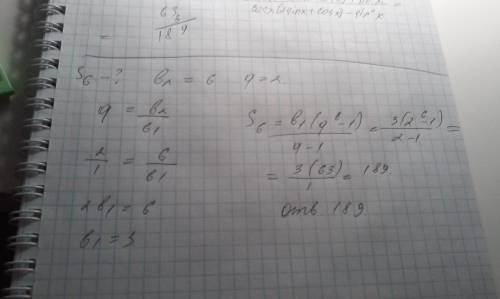 63
3
= 189
S6 - ? b2 = 6 q = 2
q = b2/b1
2/1 = 6/b1
2b1 = 6
b1 = 3
S6 = b1(q^6-1)/q-1 = 3(2^6-1)/2-1 =
= 3(63)/1 = 189
отв 189